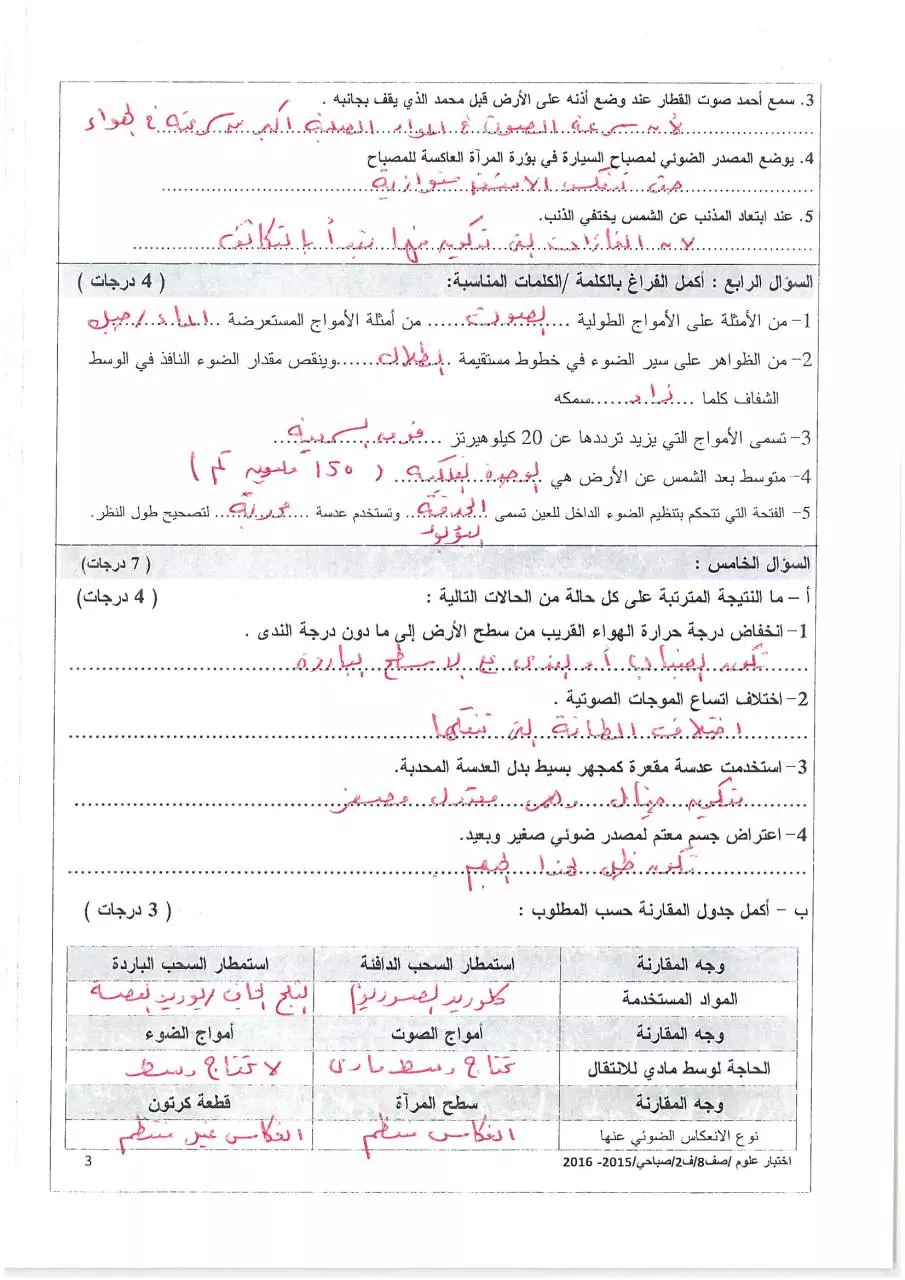 3. سمع أحمد صوت القطار عند وضع أذنه على الأرض قبل محمد الذي يقف بجانبه .
لأن سرعة الصوت في المواد الصلبة أكبر من سرعته في الهواء
4. يوضع المصدر الضوئي لمصباح السيارة في بؤرة المرآة العاكسة للمصباح
حتى تنعكس الأشعة متوازية
5. عند ابتعاد المذنب عن الشمس يختفي الذنب.
لأن الغازات التي تتكون منها تبدأ بالتكاثف
السؤال الرابع : أكمل الفراغ بالكلمة /الكلمات المناسبة: ( 4 درجات )
1- من الأمثلة على الأمواج الطولية ...الصوت... من أمثلة الأمواج المستعرضة الماء/حبل
2- من الظواهر على سير الضوء في خطوط مستقيمة ...الظلال...وينقص مقدار الضوء النافذ في الوسط
الشفاف كلما ...زاد...سمكه
3- تسمى الأمواج التي يزيد ترددها عن 20 كيلوهيرتز ...فوق سمعية...
4- متوسط بعد الشمس عن الأرض هي ...الوحدة الفلكية ( 150 مليون كم )
5- الفتحة التي تتحكم بتنظيم الضوء الداخل للعين تسمى الحدقة... وتستخدم عدسة ...محدبة... لتصحيح طول النظر.
البؤبؤ
السؤال الخامس : ( 7 درجات)
أ – ما النتيجة المترتبة على كل حالة من الحالات التالية : ( 4 درجات)
1- انخفاض درجة حرارة الهواء القريب من سطح الأرض إلى ما دون درجة الندى .
تكون الضباب أو الندى على الأسطح الباردة
2- اختلاف اتساع الموجات الصوتية .
اختلاف الطاقة التي تنقلها
3- استخدمت عدسة مقعرة كمجهر بسيط بدل العدسة المحدبة.
يتكون خيال وهمي معتدل وصغير
4- اعتراض جسم معتم لمصدر ضوئي صغير وبعيد.
تكون ظل لهذا الجسم
ب – أكمل جدول المقارنة حسب المطلوب : ( 3 درجات )
وجه المقارنة استمطار السحب الدافئة استمطار السحب الباردة
المواد المستخدمة كلوريد الصوديوم الثلج الجاف/يوريد الفضة
وجه المقارنة أمواج الصوت أمواج الضوء
الحاجة لوسط مادي للانتقال تحتاج وسط مادي لا تحتاج وسط
وجه المقارنة سطح المرآة قطعة كرتون
نوع الانعكاس الضوئي عنها انعكاس منتظم انعكاس غير منتظم
اختبار علوم /صف8/ف2/صباحي/2015- 2016 3